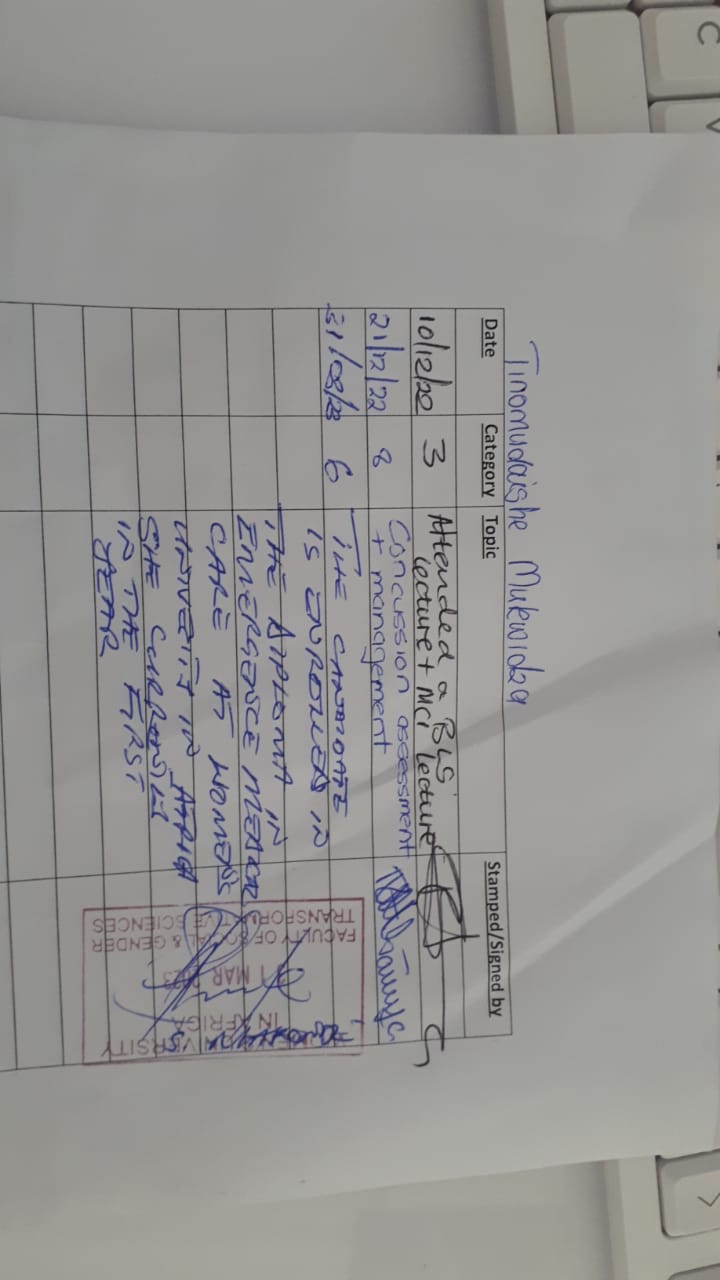 Tinomudaishe Mukwidza
Date Category Topic Stamped/Signed by
10/12/22 3 Attended a BLS
lecture + MCI lecture
21/12/22 8 Concussion assessment
+ management
31/03/23 6 THE CANDIDATE
IS ENROLLED IN
THE DIPLOMA IN
EMERGENCE MEDICAL
CARE AT WOMENS
UNIVESITY IN AFRICA
SHE CURRENTLY
IN THE FIRST
YEAR
UNIVERSITY
IN AFRICA
MAR 2023
FACULTY OF SOCIAL & GENDER
TRANSFORMATIVE SCIENCES
C